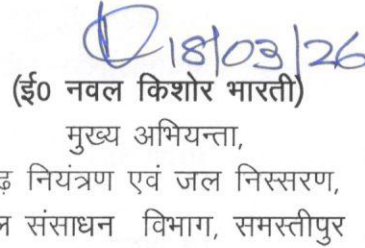 18/03/26
(ई0 नवल किशोर भारती)
मुख्य अभियन्ता,
नियंत्रण एवं जल निस्सरण,
संसाधन विभाग, समस्तीपुर